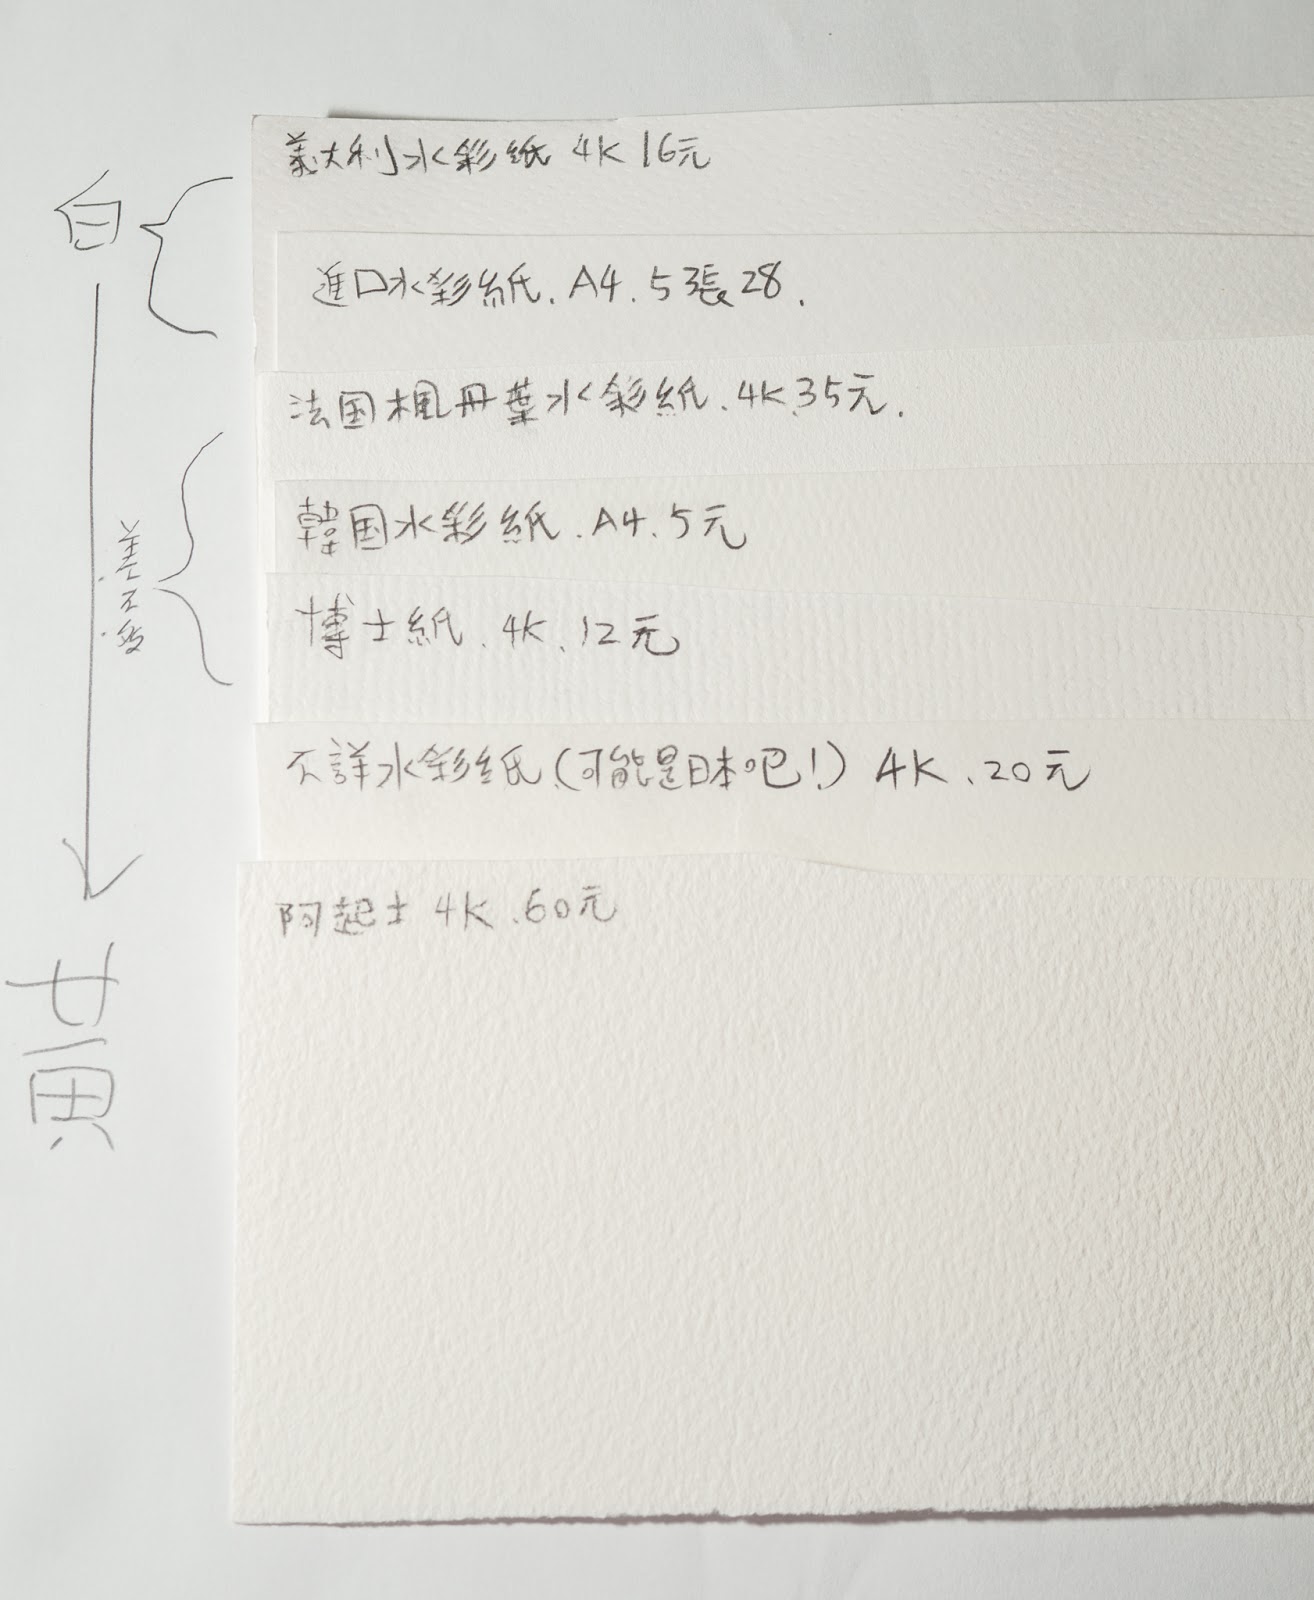 義大利水彩紙 4K 16元
白
進口水彩紙. A4. 5張28.
法国楓丹葉水彩紙. 4K.35元.
韓国水彩紙. A4. 5元
差不多
博士紙. 4K. 12元
不詳水彩紙(可能是日本吧!) 4K. 20元
阿起士 4K. 60元
黃